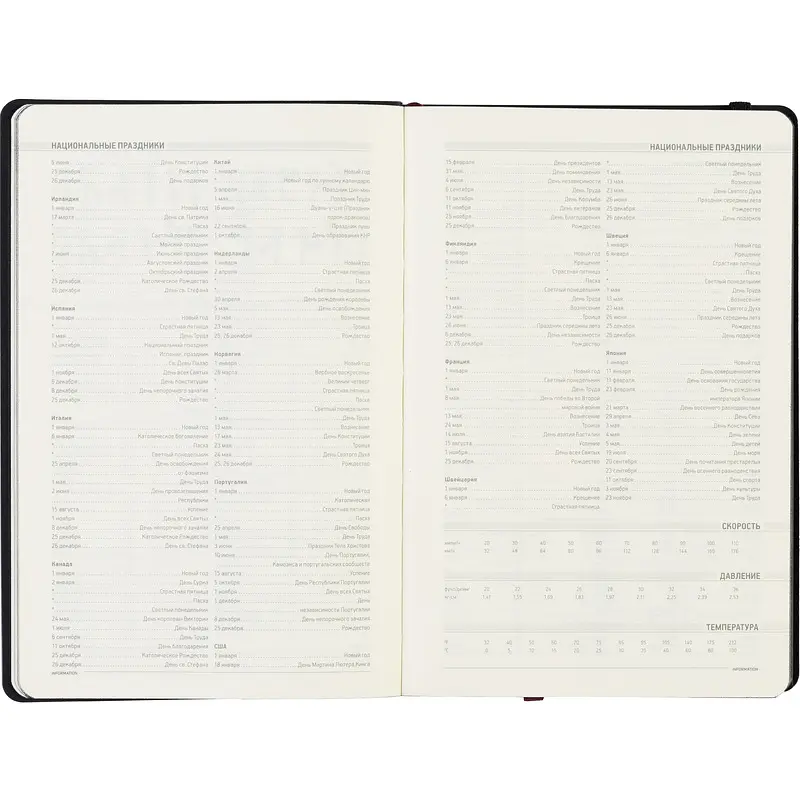 НАЦИОНАЛЬНЫЕ ПРАЗДНИКИ
6 июня День Конституции
25 декабря Рождество
26 декабря День подарков
Ирландия
1 января Новый год
17 марта День св. Патрика
* Пасха
* Светлый понедельник
* Майский праздник
7 июня Июньский праздник
* Августовский праздник
* Октябрьский праздник
25 декабря Католическое Рождество
26 декабря День св. Стефана
Испания
1 января Новый год
* Страстная пятница
1 мая День Труда
12 октября Национальный праздник
Испании, праздник
Св. Девы Пилар
1 ноября День всех Святых
6 декабря День Конституции
8 декабря День непорочного зачатия
25 декабря Рождество
Италия
1 января Новый год
6 января Католическое Богоявление
* Пасха
* Светлый понедельник
25 апреля День освобождения
от фашизма
1 мая День Труда
2 июня День провозглашения
Республики
15 августа Успение
1 ноября День всех Святых
8 декабря День непорочного зачатия
25 декабря Католическое Рождество
26 декабря День св. Стефана
Канада
1 января Новый год
2 января День Сурка
* Страстная пятница
* Пасха
* Светлый понедельник
24 мая День королевы Виктории
1 июля День Канады
6 сентября День Труда
11 октября День Благодарения
25 декабря Католическое Рождество
26 декабря День св. Стефана
INFORMATION
Китай
1 января Новый год
* Новый год по лунному календарю
5 апреля Праздник Цин-мин
1 мая Праздник Труда
16 июня Дуань-у-цзе (Праздник
22 сентября Праздник луны
1 октября День образования КНР
Нидерланды
1 января Новый год
2 апреля Страстная пятница
* Пасха
* Светлый понедельник
30 апреля День рождения королевы
5 мая День освобождения
13 мая Вознесение
23 мая Троица
25, 26 декабря Рождество
Норвегия
1 января Новый год
28 марта Вербное воскресенье
* Великий четверг
* Страстная пятница
* Пасха
* Светлый понедельник
1 мая День Труда
13 мая Вознесение
17 мая День Конституции
23 мая Троица
24 мая День Святого Духа
25, 26 декабря Рождество
Португалия
1 января Новый год
* Католическая
Страстная пятница
* Пасха
25 апреля День Свободы
1 мая День Труда
3 июня Праздник Тела Христова
10 июня День Португалии,
Камоэнса и португальских сообществ
15 августа Успение
5 октября День Республики Португалии
1 ноября День всех Святых
1 декабря День
независимости Португалии
8 декабря День непорочного зачатия
25 декабря Рождество
США
1 января Новый год
18 января День Мартина Лютера Кинга
НАЦИОНАЛЬНЫЕ ПРАЗДНИКИ
15 февраля День президентов
31 мая День поминовения
4 июля День независимости
6 сентября День Труда
11 октября День Колумба
11 ноября День ветеранов
25 ноября День Благодарения
25 декабря Рождество
Финляндия
1 января Новый год
6 января Крещение
* Страстная пятница
* Пасха
* Светлый понедельник
1 мая День Труда
13 мая Вознесение
23 мая Троица
26 июня Праздник середины лета
6 декабря День независимости
25, 26 декабря Рождество
Франция
1 января Новый год
* Светлый понедельник
1 мая День Труда
8 мая День победы во Второй
мировой войне
13 мая Вознесение
24 мая Троица
14 июля День взятия Бастилии
15 августа Успение
1 ноября День всех Святых
25 декабря Рождество
Швейцария
1 января Новый год
6 января Крещение
* Страстная пятница
* Светлый понедельник
1 мая День Труда
13 мая Вознесение
23 мая День Святого Духа
26 июня Праздник середины лета
25 декабря Рождество
26 декабря День подарков
Швеция
1 января Новый год
6 января Крещение
* Страстная пятница
* Пасха
* Светлый понедельник
1 мая День Труда
13 мая Вознесение
23 мая День Святого Духа
26 июня Праздник середины лета
25 декабря Рождество
26 декабря День подарков
Япония
1 января Новый год
11 января День совершеннолетия
11 февраля День основания государства
* День рождения
императора Японии
21 марта День весеннего равноденствия
29 апреля День Сёва
3 мая День Конституции
4 мая День зелени
5 мая День детей
19 июля День моря
20 сентября День почитания престарелых
23 сентября День осеннего равноденствия
11 октября День спорта
3 ноября День культуры
23 ноября День Труда
СКОРОСТЬ
20 30 40 50 60 70 80 90 100 110
32 48 64 80 96 112 128 144 160 176
ДАВЛЕНИЕ
ТЕМПЕРАТУРА
INFORMATION